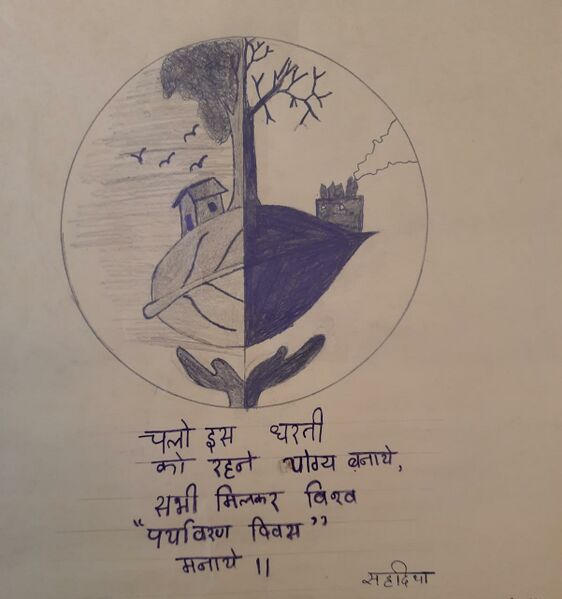 चलो इस धरती
को रहने योग्य बनाये,
सभी मिलकर विश्व
“पर्यावरण दिवस”
मनाये ॥